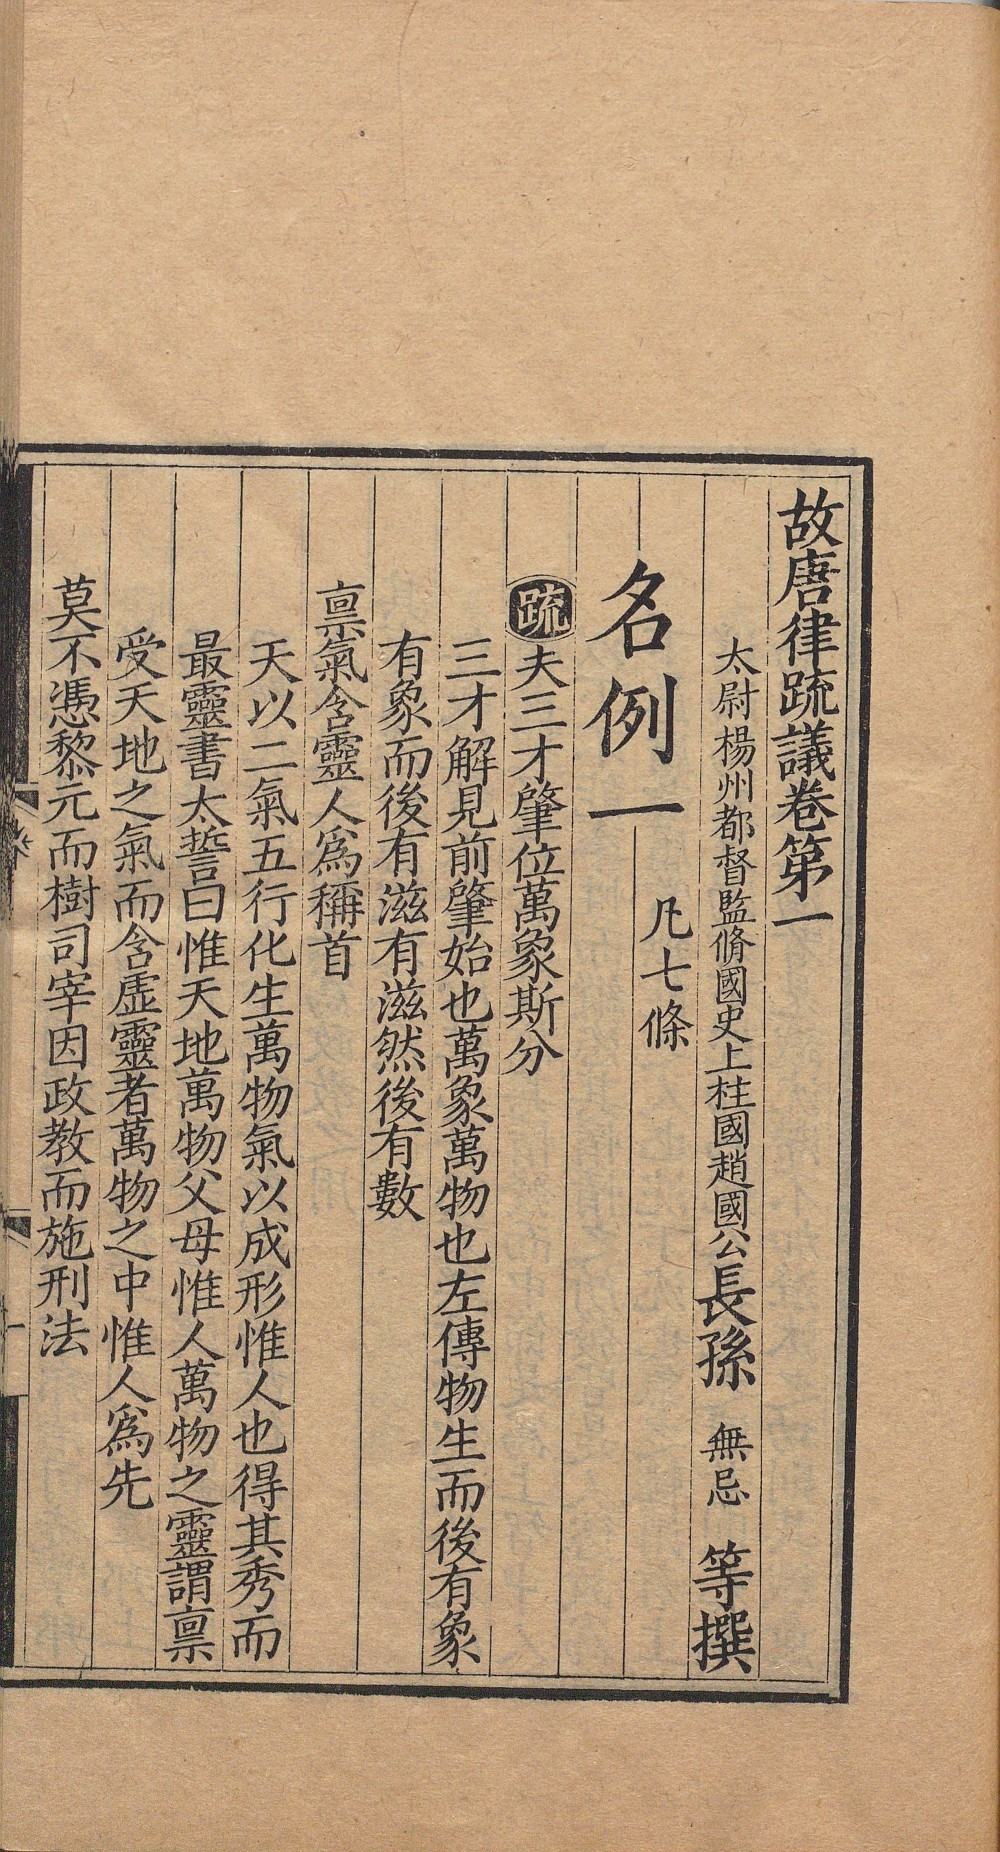 故唐律疏議卷第一
太尉楊州都督監脩國史上柱國趙國公長孫 無忌 等撰
名例一 凡七條
疏夫三才肇位萬象斯分
三才解見前肇始也萬象萬物也左傳物生而後有象
有象而後有滋有滋然後有數
稟氣含靈人爲稱首
天以二氣五行化生萬物氣以成形惟人也得其秀而
最靈書太誓曰惟天地萬物父母惟人萬物之靈謂稟
受天地之氣而含虛靈者萬物之中惟人爲先
莫不憑黎元而樹司宰因政教而施刑法